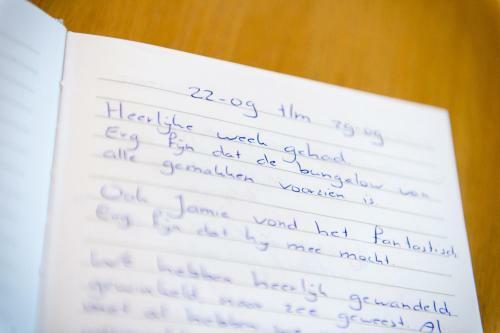 22-09 t/m 29-09
Heerlijke week gehad.
Erg fijn dat de bungalow van
alle gemakken voorzien is
Ook Jamie vond het fantastisch
Erg fijn dat hij mee mocht.
We hebben heerlijk gewandeld
gewinkeld naar zee geweest. Al
met al hebben we